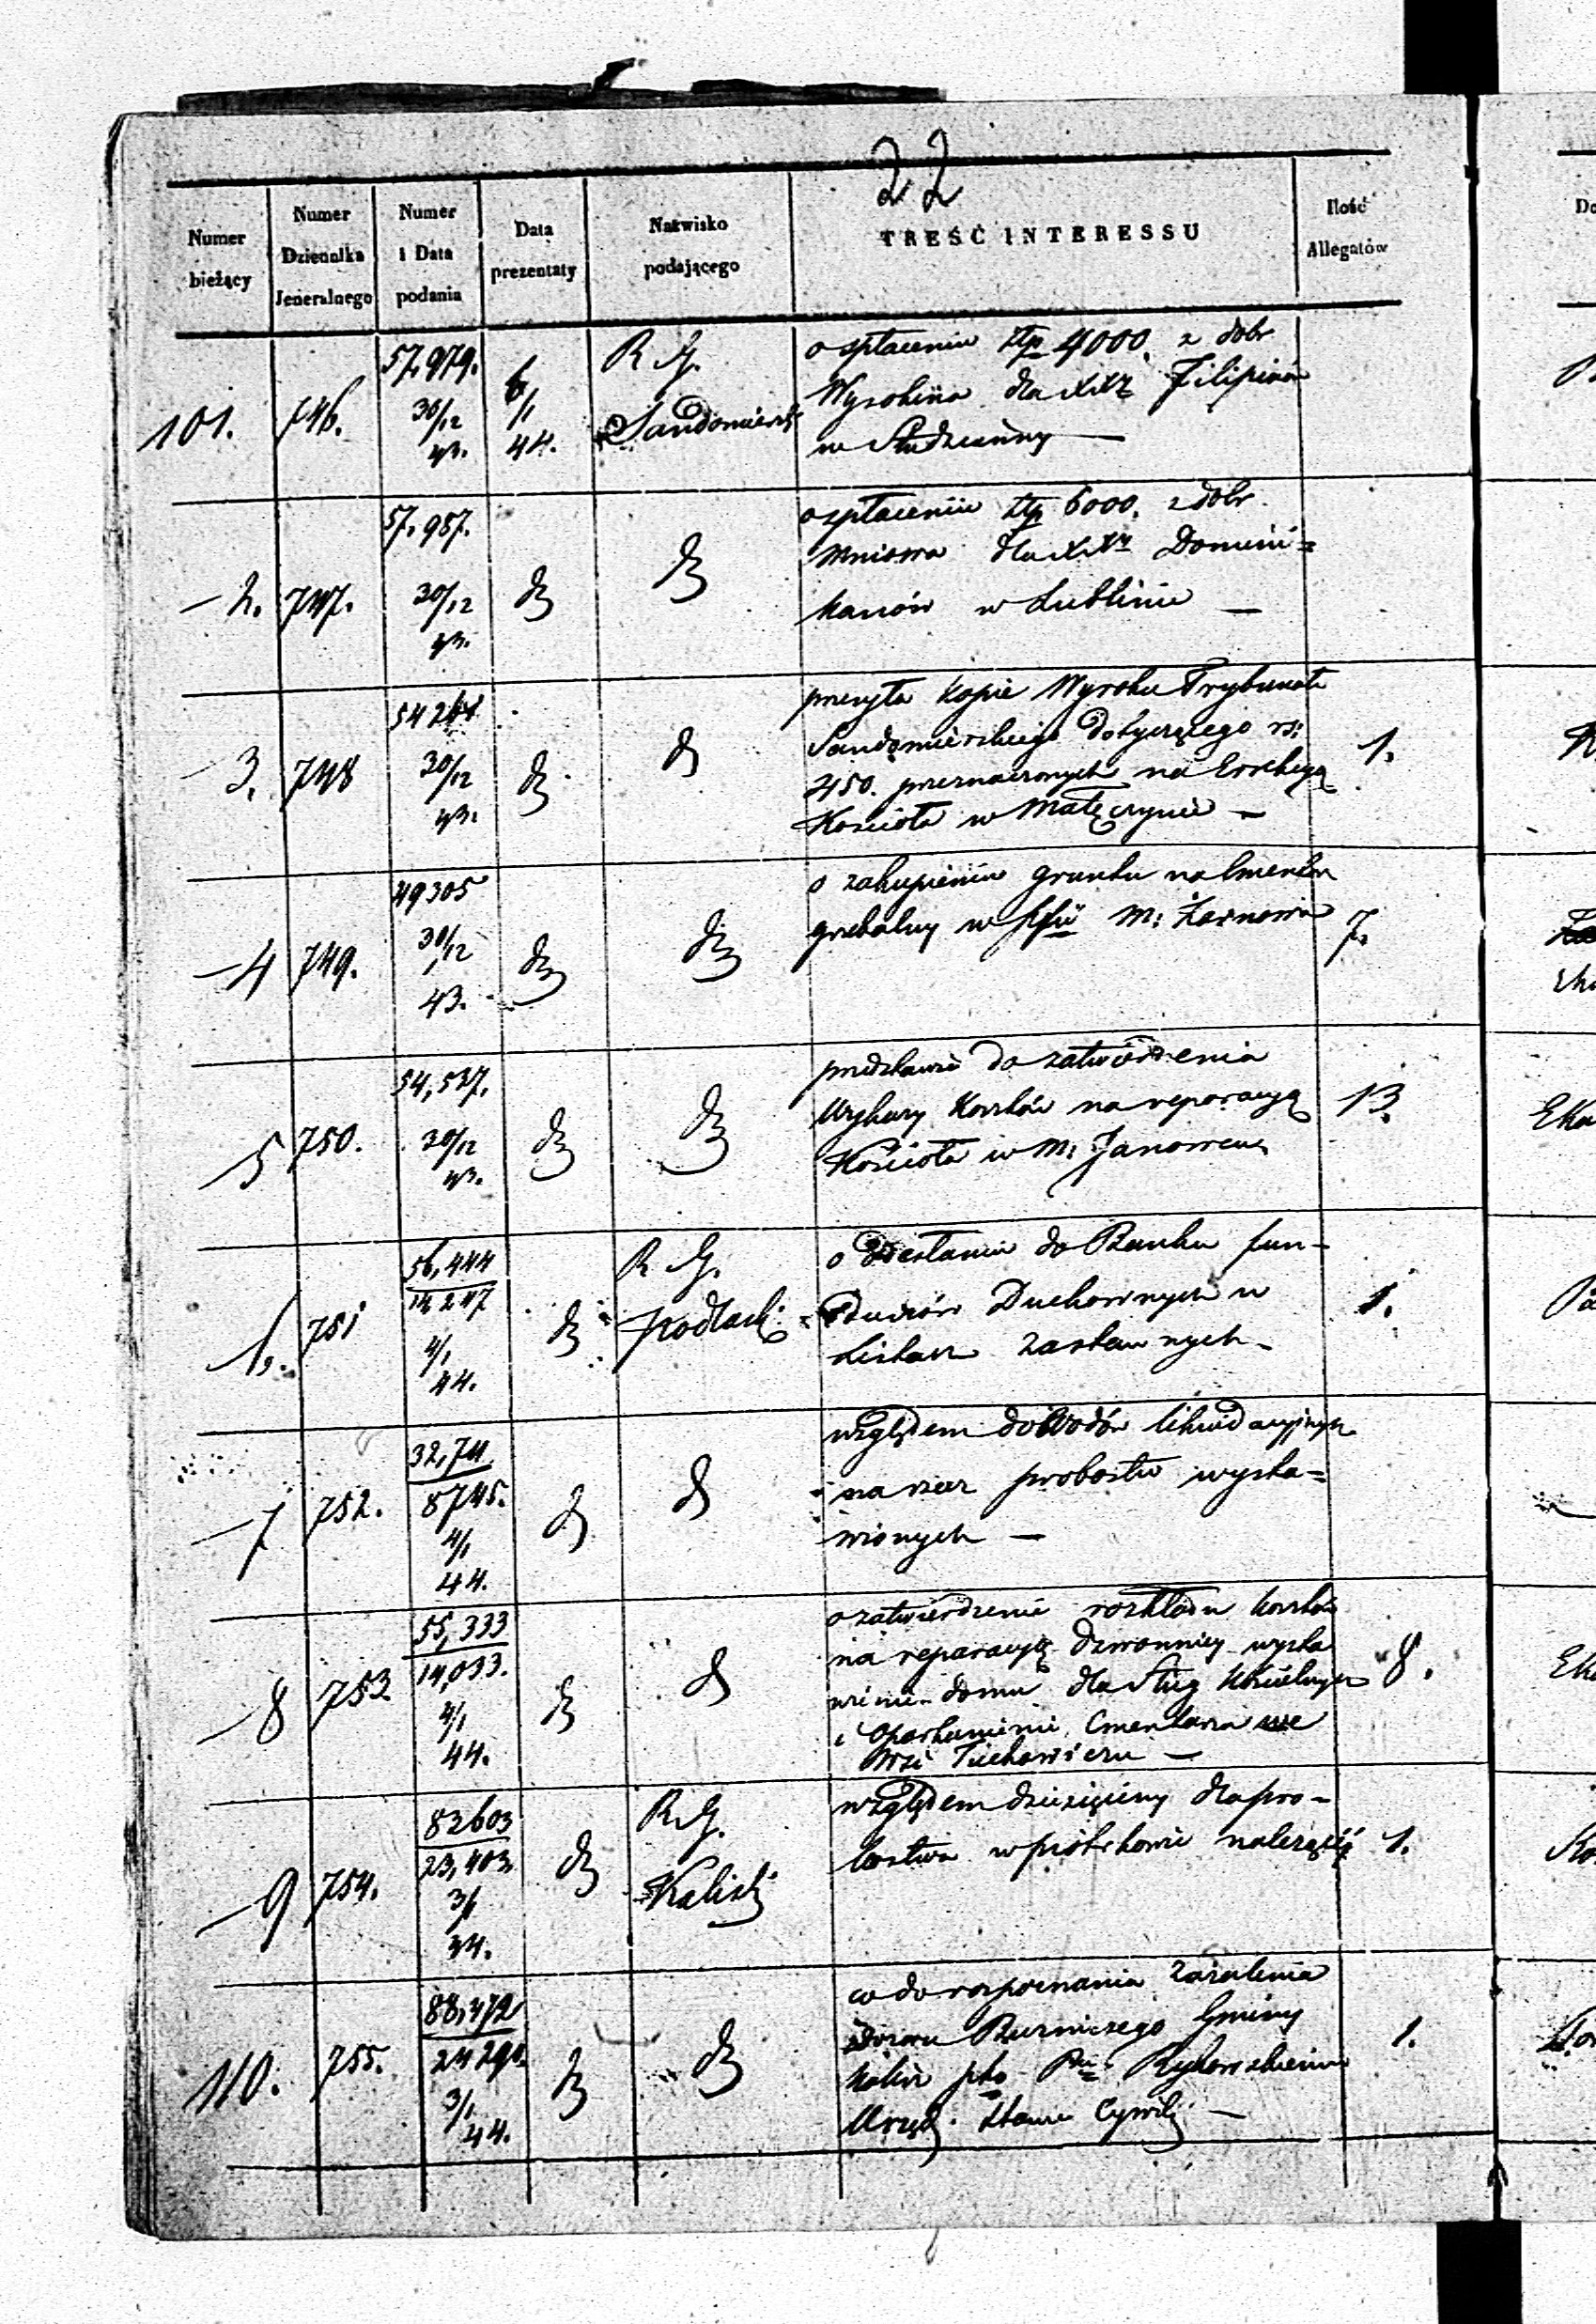 22
Numer bieżący
Numer Dziennika Jeneralnego
Numer i Data podania
Data prezentaty
Nazwisko podającego
TREŚĆ INTERESSU
Ilość Allegatów
101. 746. 57,979. 30/12 43. 6/1 44. R. G. Sandomiersk
o spłaceniu złp 4000. z dobr
Wysokina dla XX Filipinów
w Studziannÿ —
— 2. 747. 57,987. 30/12 43. dº dº
o spłaceniu złp 6000. z dobr
Mniszwa dla XX Domini=
kanów w Lublinie —
— 3. 748 30/12 43. dº dº
przesyła kopie Wyroku Trybunału
Sandomierskiego dotyczącego rs:
450. przeznaczonych na Erekcyą
Kościoła w Małęczynie — 1.
— 4 749. 49305 30/12 43. dº dº
o zakupieniu gruntu na Cmentarz
grzebalny w M: Żarnowie 7.
5 750. 54,537. 30/12 43. dº dº
przedstawia do zatwierdzenia
Kosztów na reparacyą
Kościoła w M: Janowcu 13.
6. 751 56,444 14,247 4/1 44. dº R. G. Podlaski
o odesłaniu do Banku fun=
duszów Duchownych w
Listach Zastawnych — 1.
— 7 752. 32,711 8745. 4/1 44. dº dº
względem dowodów likwidacyjnych
na rzecz probostw wysta=
wionych —
— 8 753 55,333 14,033. 4/1 44. dº dº
o zatwierdzenie rozkładu kosztów
na reparacyą dzwonnicy wysta
wienie domu dla Sług Kościelnych
i oparkanienie Cmentarza we
Wsi Tuchowiczu — 8.
— 9 754. 82603 23,403 3/1 44. dº R. G. Kalisk
względem dziesięciny dla pro=
bostwa w Piotrkowie należącéj 1.
110. 755. 88,472 3/1 44. dº dº
co do rozpoznania Zażalenia
Dozoru Bużniczego Gminy
pko Rykowskiemu
Urzęd. Stanu Cywil. — 1.